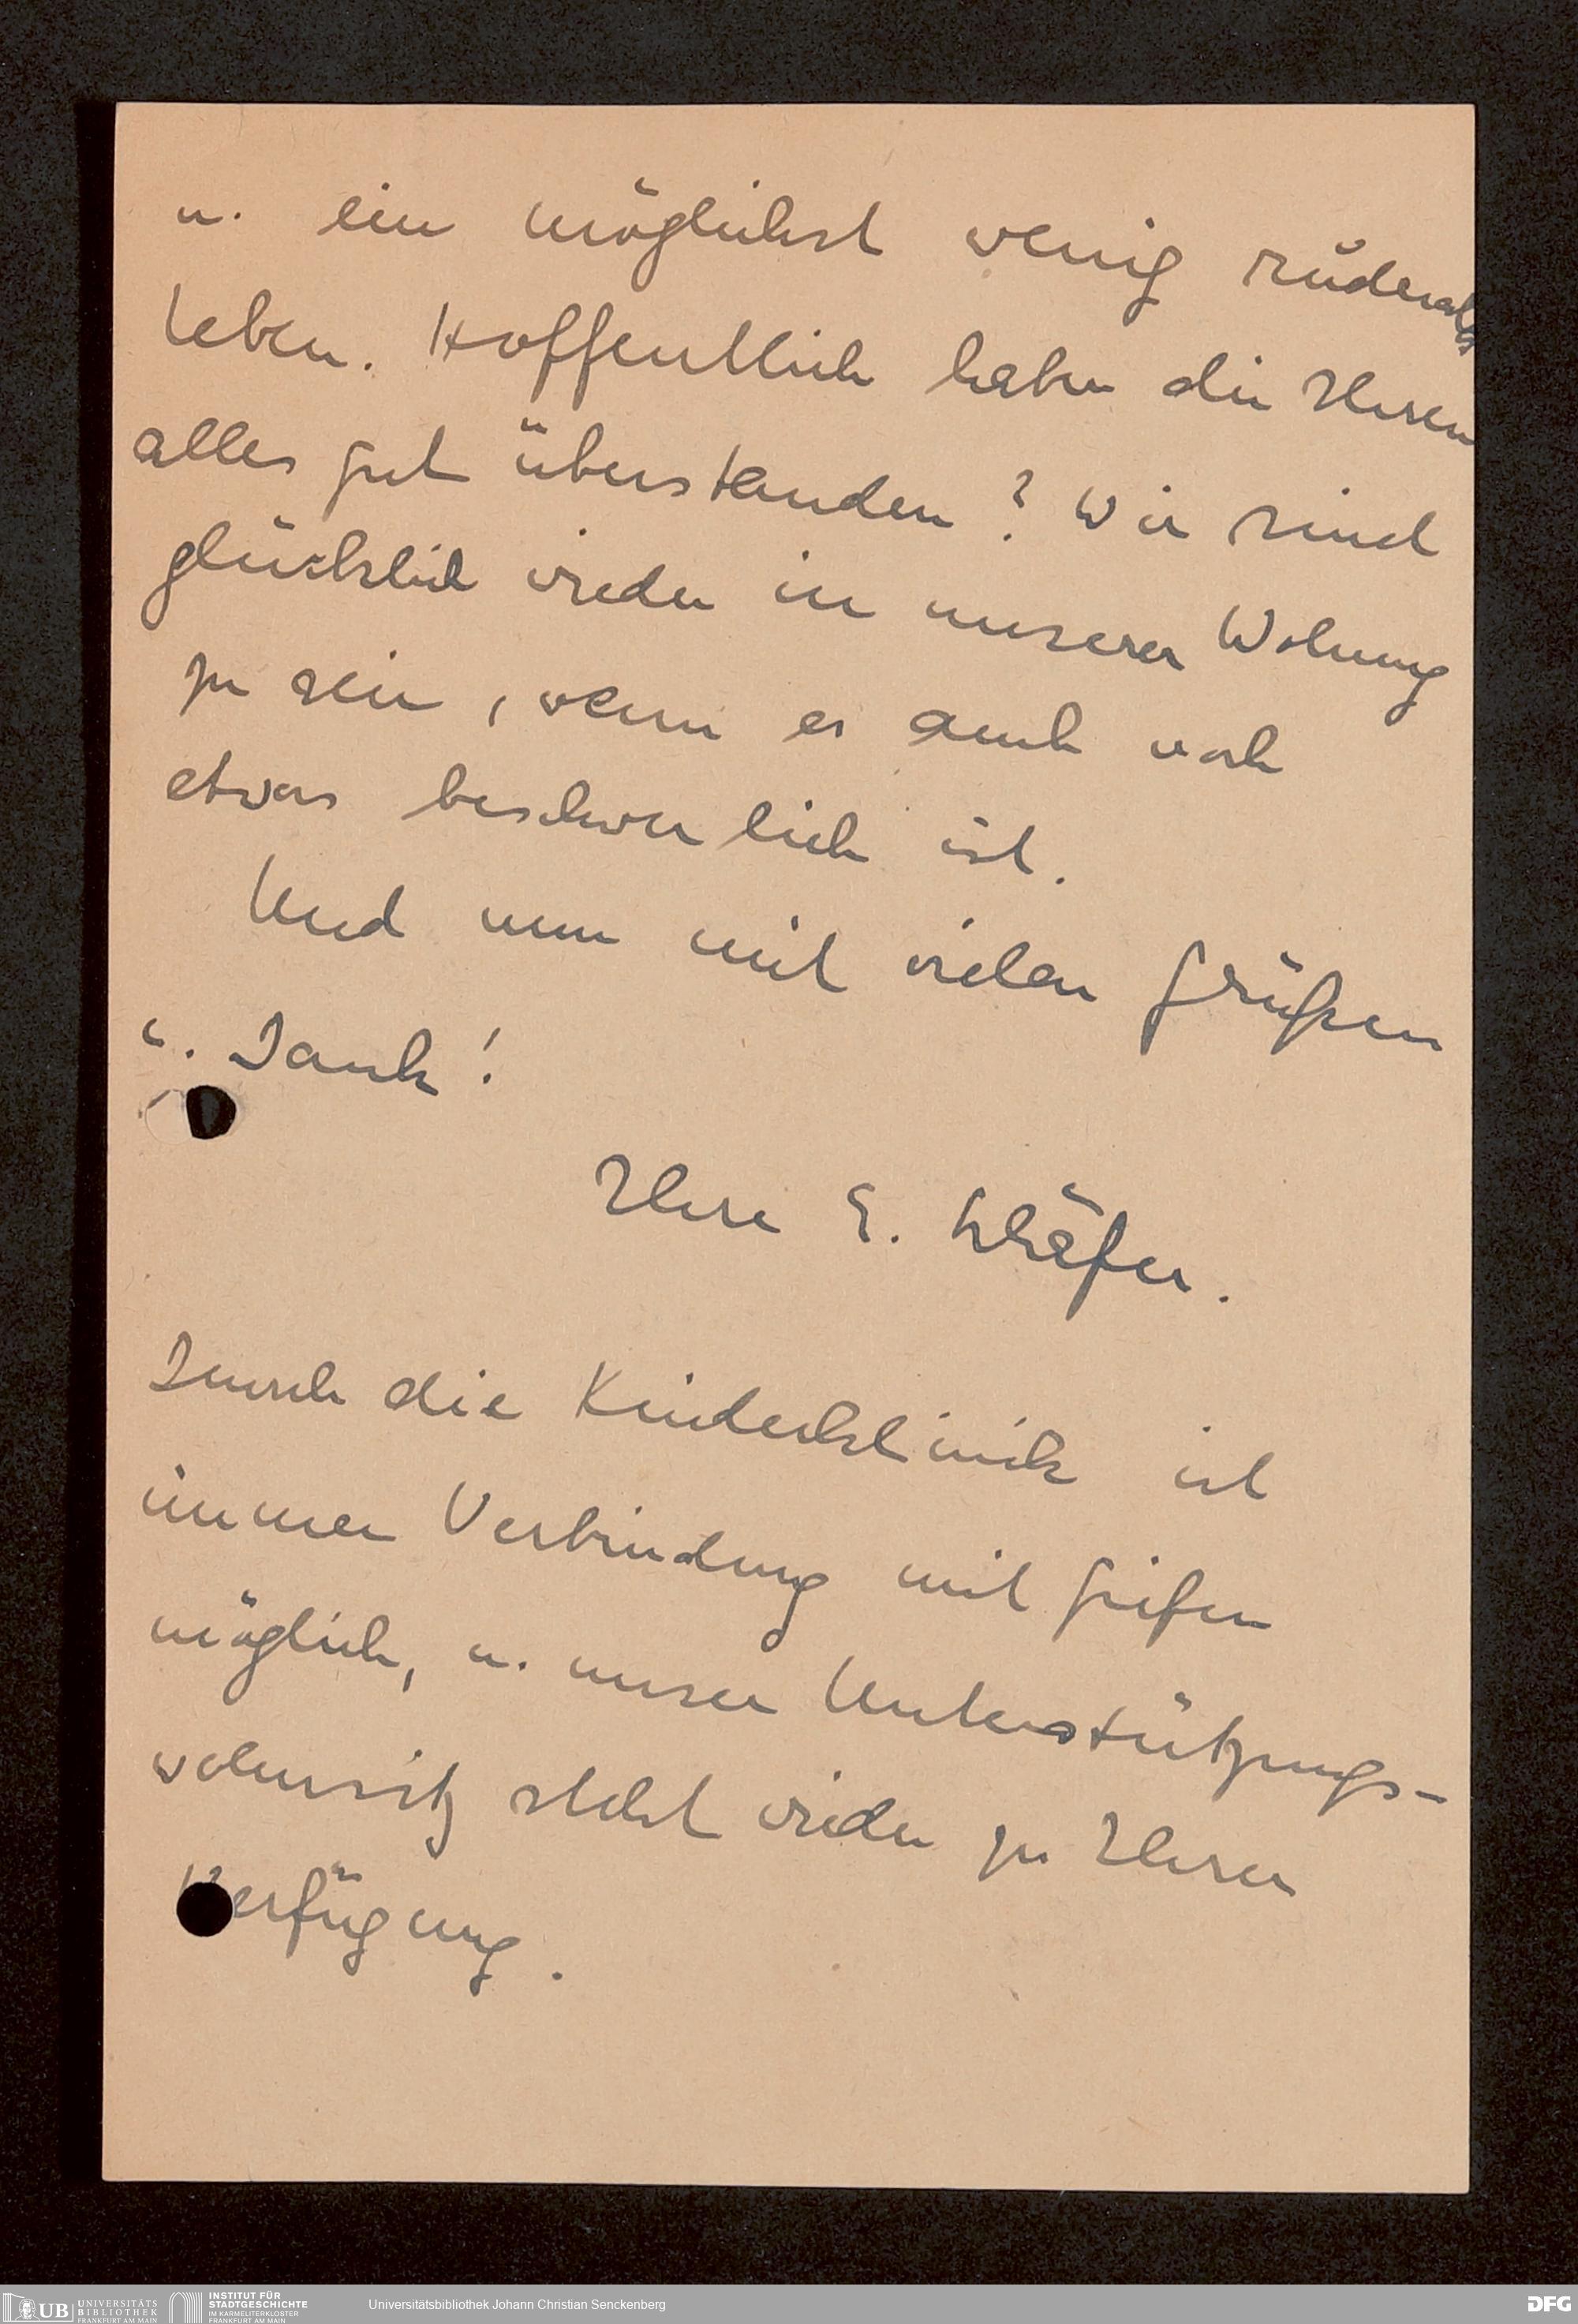 u. ein möglichst wenig
Leben. Hoffentlich haben die Ihren
alles gut überstanden? Wir sind
glücklich wieder in unserer Wohnung
zu sein, wenn es auch noch
etwas beschwerlich ist.
Und nun mit vielen Grüßen
u. Dank!
Ihre E. Schäfer.
Durch die Kinderklinik ist
immer Verbindung mit
möglich, u. unser Unterstützungs-
wohnsitz steht wieder zu Ihrer
Verfügung.
UB UNIVERSITÄTS
BIBLIOTHEK
FRANKFURT AM MAIN
INSTITUT FÜR
STADTGESCHICHTE
IM KARMELITERKLOSTER
FRANKFURT AM MAIN
Universitätsbibliothek Johann Christian Senckenberg
DFG